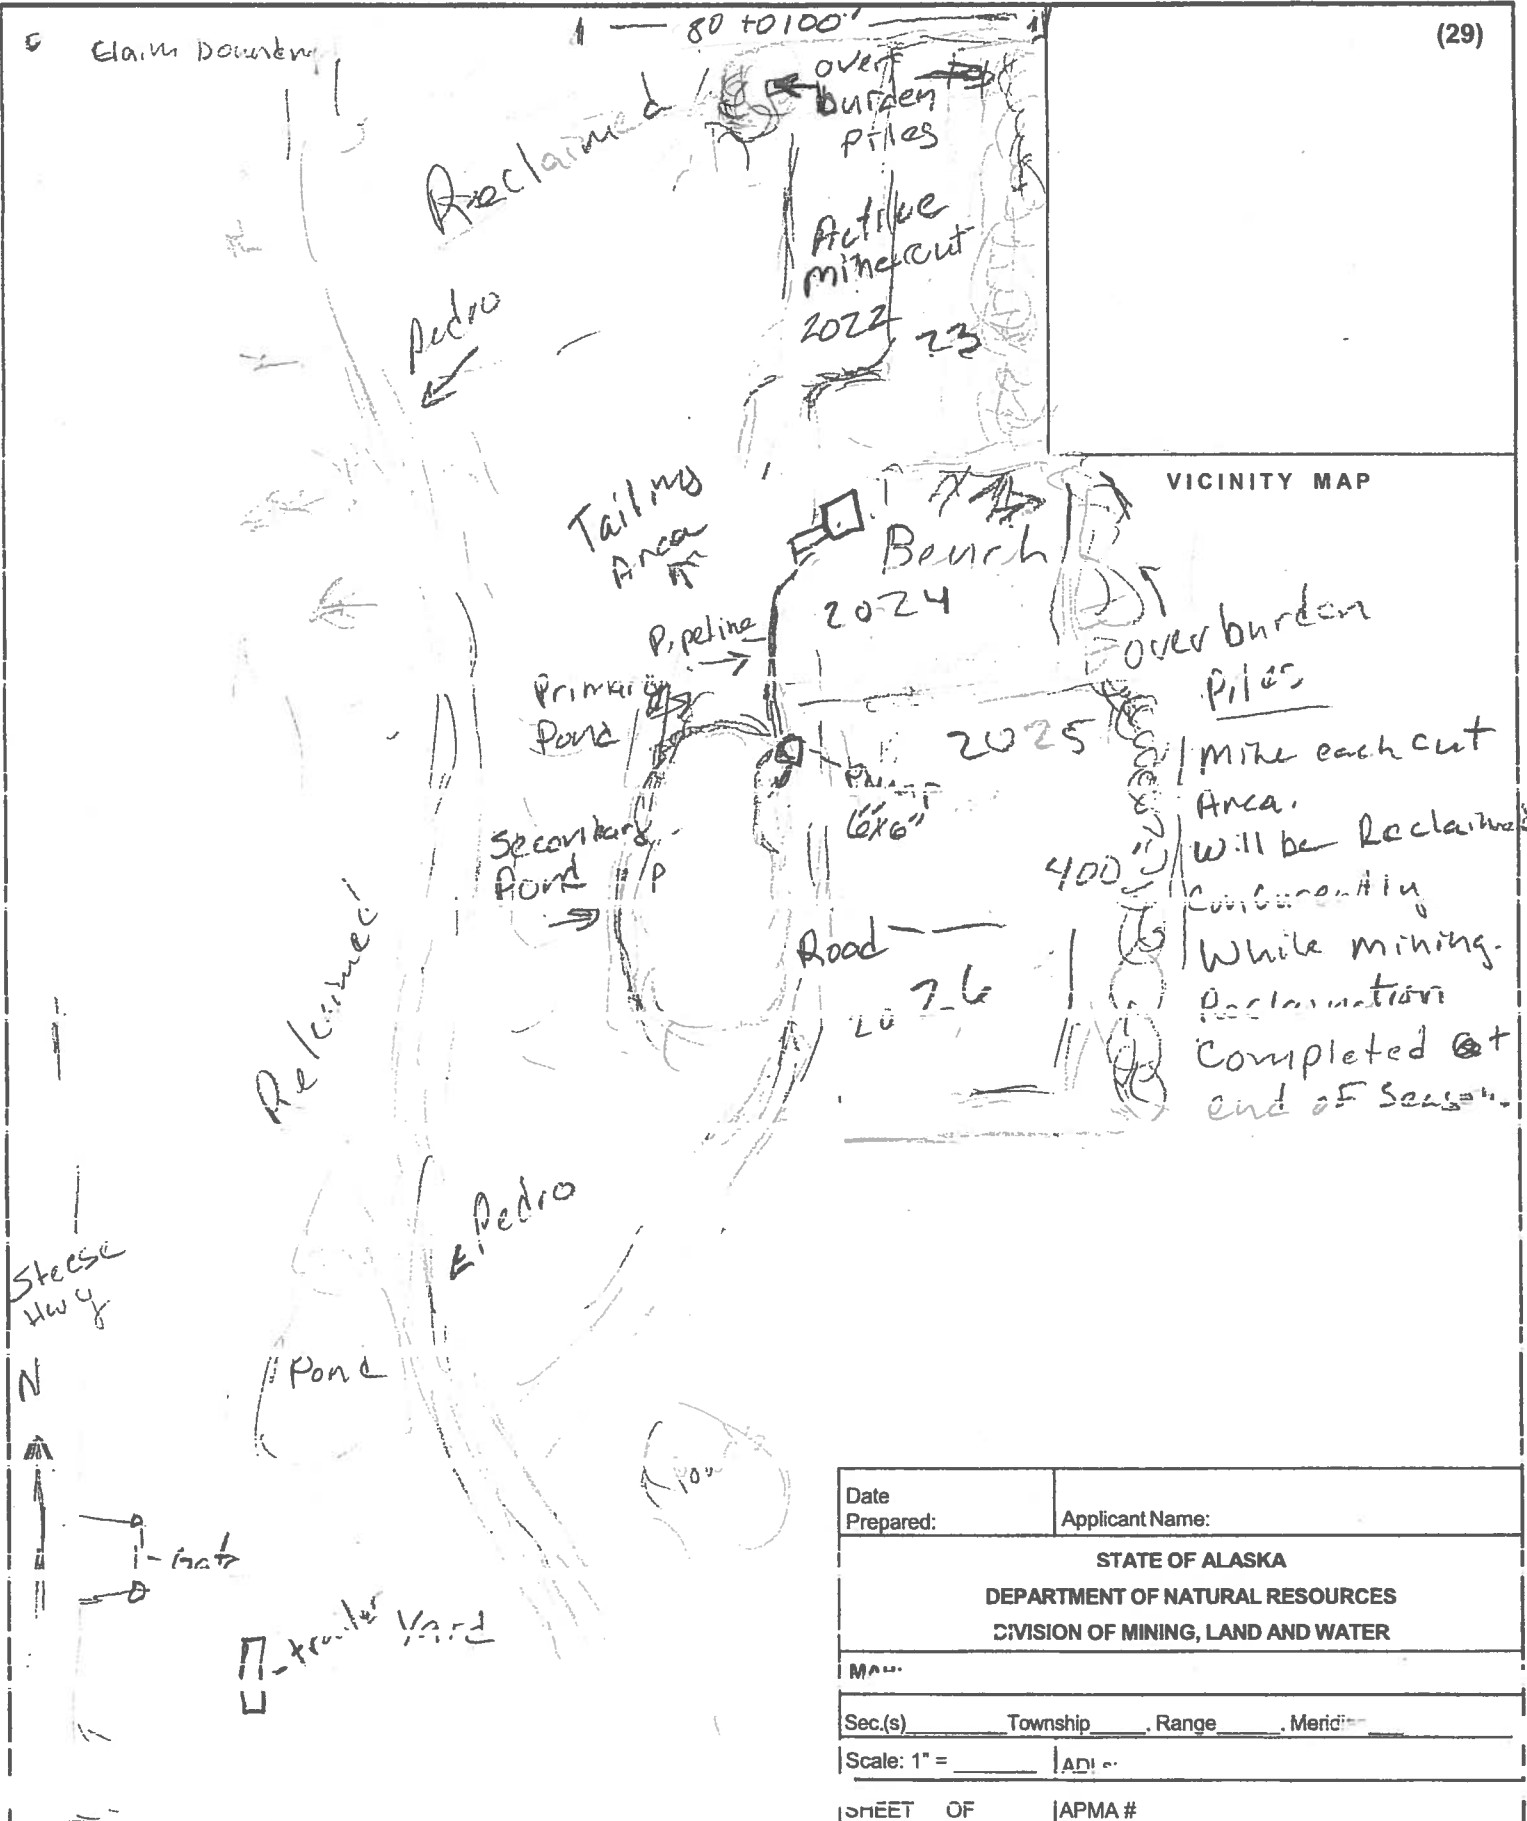 80 to 100"
(29)
Claim Boundry
over
burden
Piles
Reclaimed
Active
mine cut
2022
23
Pedro
VICINITY MAP
Tailing
Area
Bench
2024
overburden
Piles
Pipeline
Primary
Pond
2025
Pump
6x6"
Mine each cut
Area.
Will be Reclaimed
Concurently
While mining.
Reclamation
Completed at
end of Season.
Secondary
Pond
P
400"
Road
2026
Pedro
Steese
Hwy
N
Pond
Gate
trailer Yard
Date
Prepared:
Applicant Name:
STATE OF ALASKA
DEPARTMENT OF NATURAL RESOURCES
DIVISION OF MINING, LAND AND WATER
Sec.(s)________ Township_____, Range_____, Meridian ___
Scale: 1" = _______
SHEET OF
APMA #